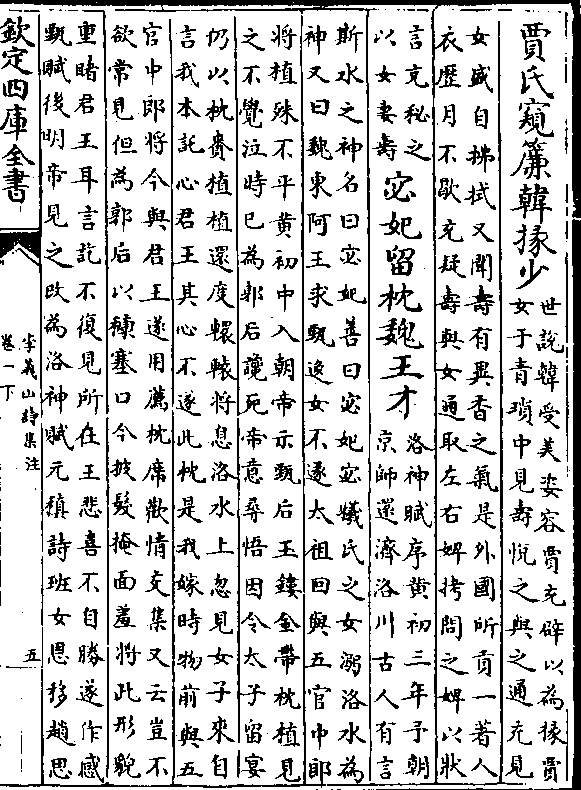 賈氏窺簾韓掾少
世說韓受美姿容賈充辟以為掾賈
女于青瑣中見壽悅之與之通充見
女盛自拂拭又聞壽有異香之氣是外國所貢一著人
衣歷月不歇充疑壽與女通取左右婢拷問之婢以狀
言充秘之
以女妻壽
宓妃留枕魏王才
洛神賦序黃初三年予朝
京師還濟洛川古人有言
斯水之神名曰宓妃善曰宓妃宓犧氏之女溺洛水為
神又曰魏東阿王求甄逸女不遂太祖回與五官中郎
將植殊不平黃初中入朝帝示甄后玉鏤金帶枕植見
之不覺泣時已為郭后讒死帝意尋悟因令太子留宴
仍以枕賚植植還度轘轅將息洛水上忽見女子來自
言我本託心君王其心不遂此枕是我嫁時物前與五
官中郎將今與君王遂用薦枕席歡情交集又云豈不
欲常見但為郭后以糠塞口今披髮掩面羞將此形貌
重睹君王耳言訖不復見所在王悲喜不自勝遂作感
甄賦後明帝見之改為洛神賦元稹詩班女恩移趙思
欽定四庫全書
李義山詩集注
卷一下
五